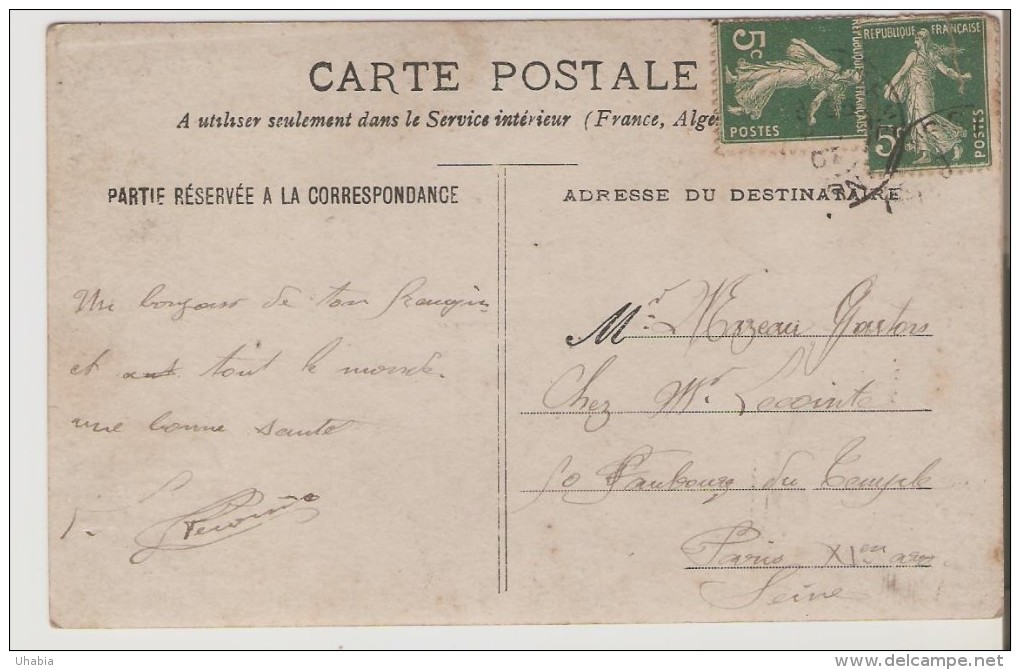 CARTE POSTALE
A utiliser seulement dans le Service intérieur (France, Algé
PARTIE RÉSERVÉE A LA CORRESPONDANCE
Un bonjour de ton
et tout le monde
une bonne santé
5c
POSTES
RÉPUBLIQUE FRANÇAISE
RÉPUBLIQUE FRANÇAISE
5c
POSTES
ADRESSE DU DESTINATAIRE
Mr Mazeau
Chez Mr Lecointe
50 Faubourg du Temple
Paris XIem arr
Seine
Uhabia
delcampe.net